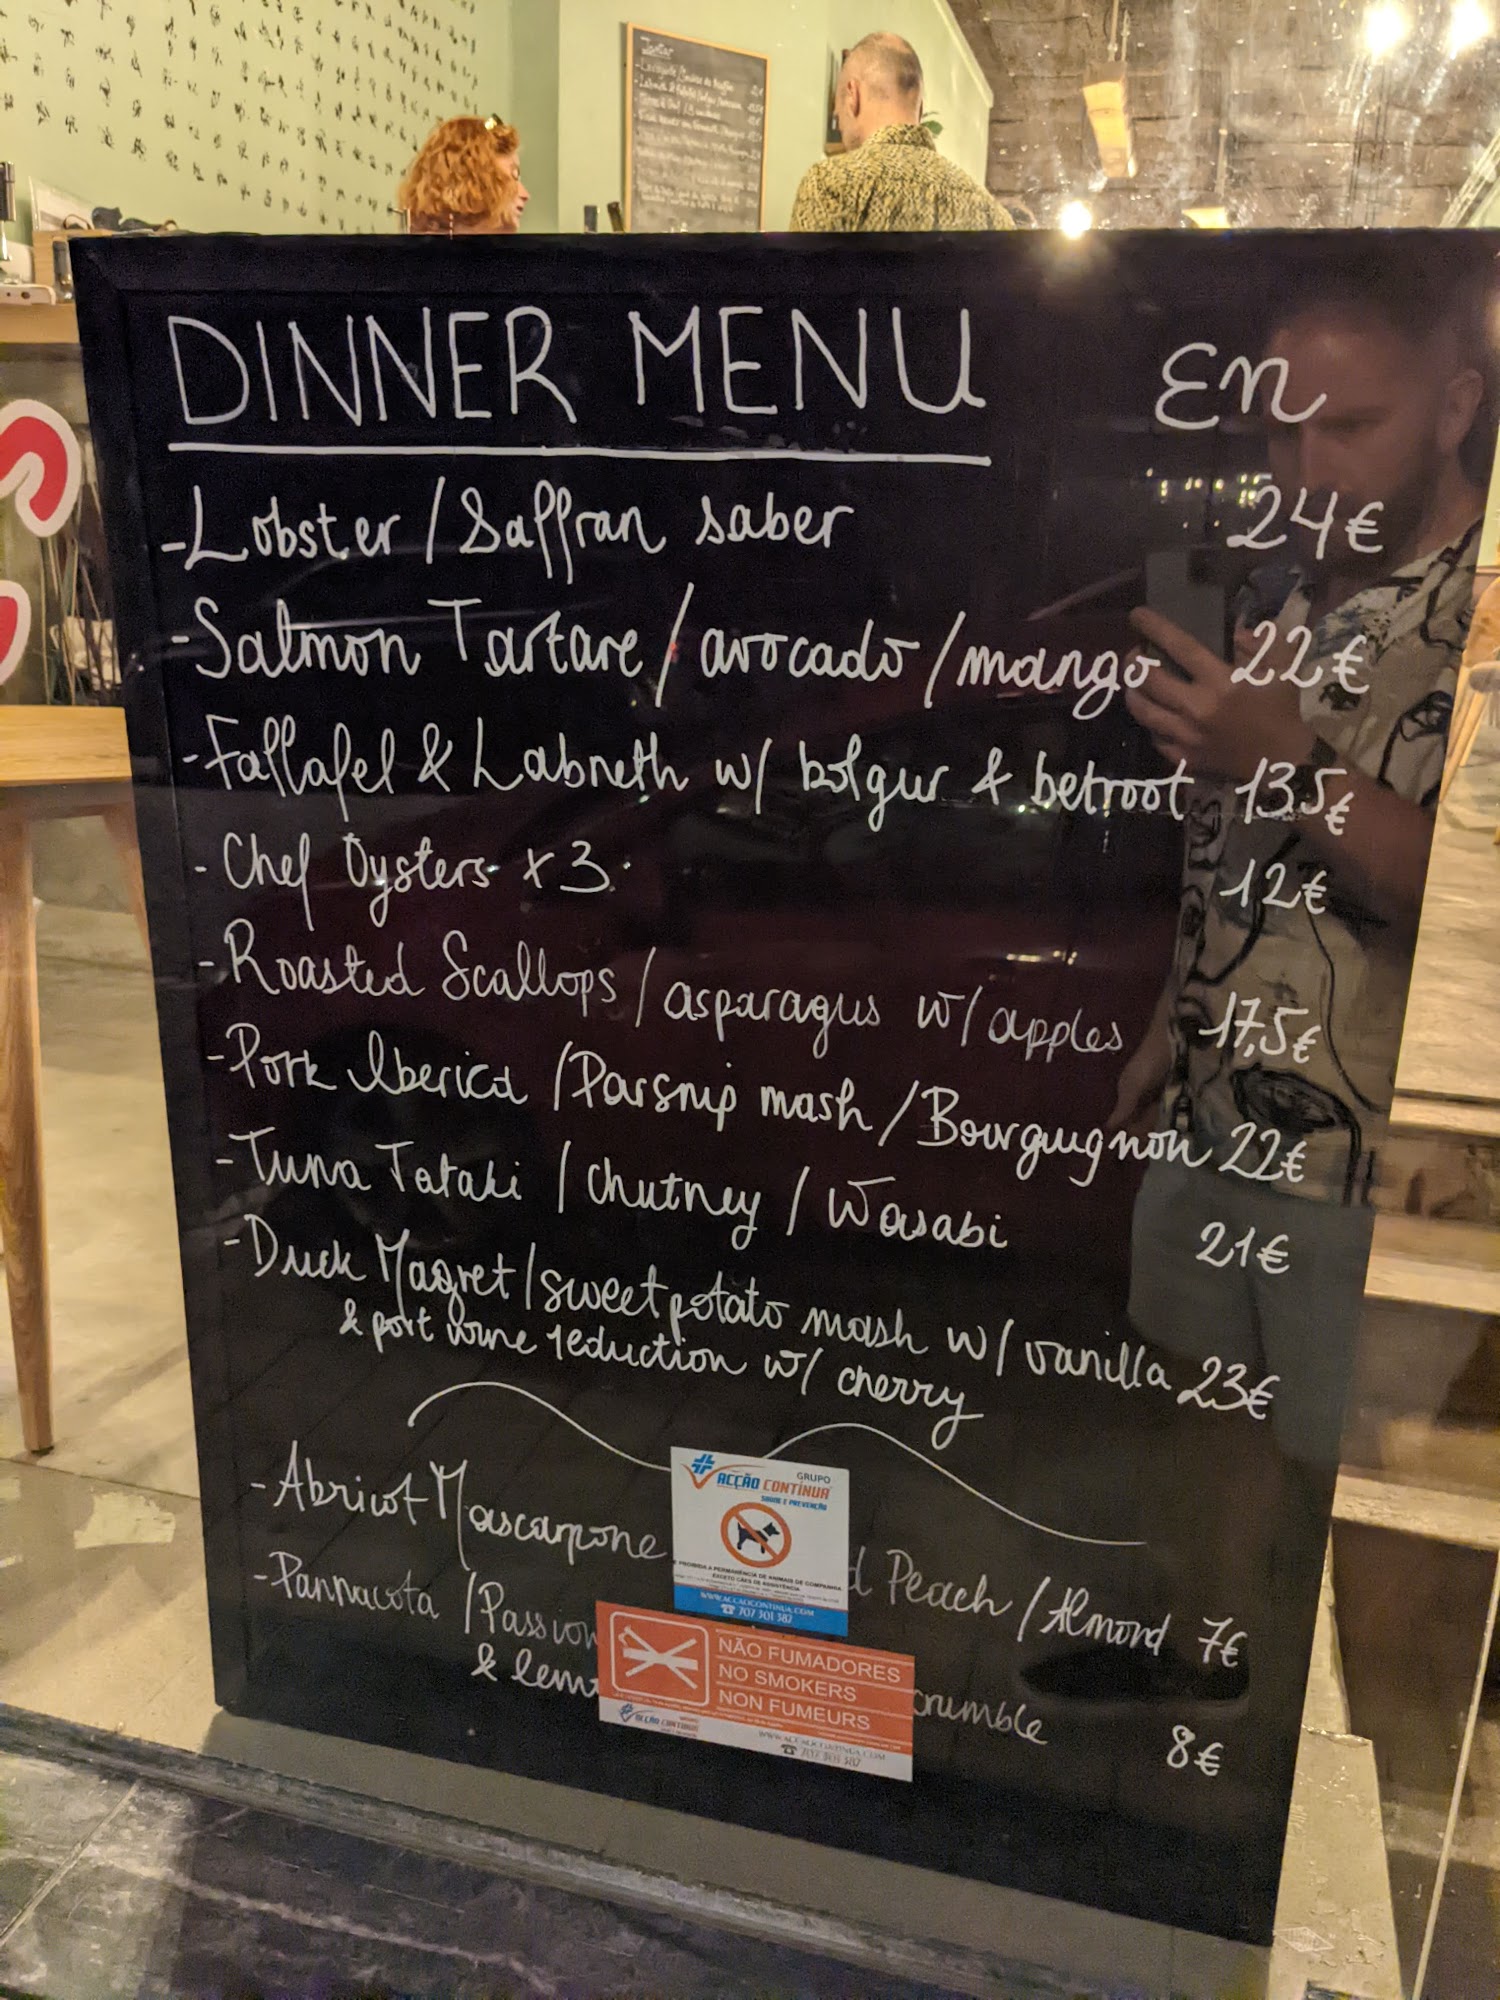 DINNER MENU En
- Lobster / Saffran saber 24€
- Salmon Tartare / avocado / mango 22€
- Fallafel & Labneth w/ bolgur & betroot 13,5€
- Chef Oysters x 3 12€
- Roasted Scallops / asparagus w/ apples 17,5€
- Pork Iberica / Parsnip mash / Bourguignon 22€
- Tuna Tataki / chutney / Wasabi 21€
- Duck Magret / sweet potato mash w/ vanilla 23€
& port wine reduction w/ cherry
- Abricot Mascarpone d Peach / Almond 7€
- Pannacota / Passion
& lem crumble 8€
GRUPO
ACÇÃO CONTÍNUA
SAÚDE E PREVENÇÃO
É PROIBIDA A PERMANÊNCIA DE ANIMAIS DE COMPANHIA
EXCETO CÃES DE ASSISTÊNCIA
WWW.ACCAOCONTINUA.COM
707 301 387
NÃO FUMADORES
NO SMOKERS
NON FUMEURS
GRUPO
ACÇÃO CONTÍNUA
WWW.ACCAOCONTINUA.COM
707 301 387